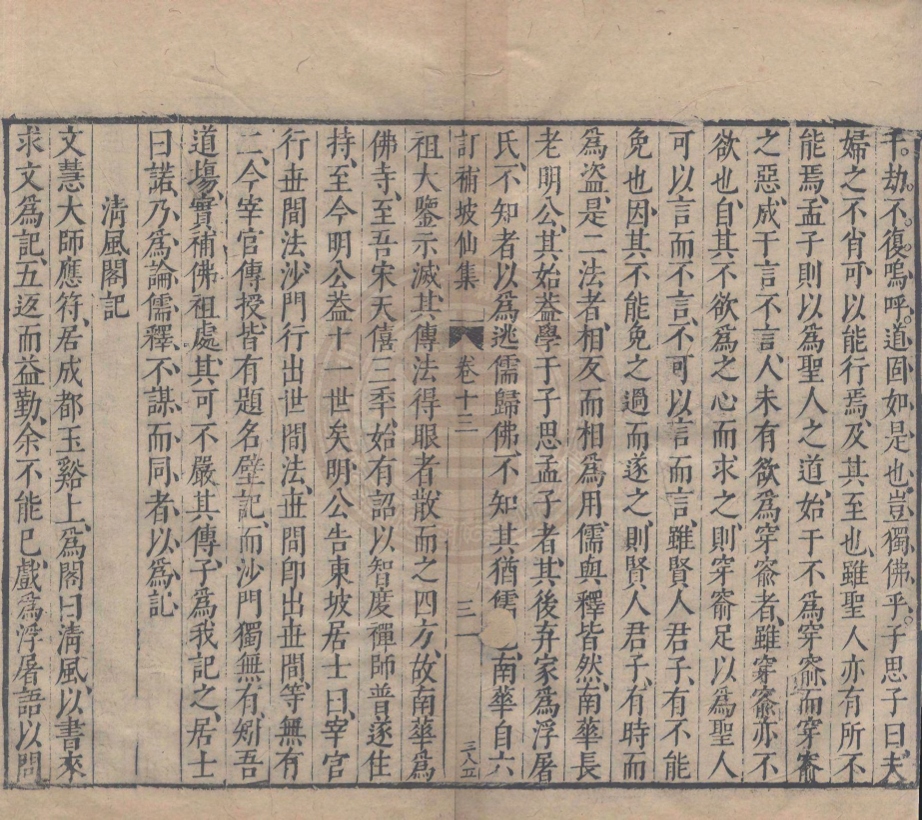 千劫不復嗚呼道固如是也豈獨佛乎子思子曰夫
婦之不肖可以能行焉及其至也雖聖人亦有所不
能焉孟子則以爲聖人之道始于不爲穿窬而穿窬
之惡成于言不言人未有欲爲穿窬者雖穿窬亦不
欲也自其不欲爲之心而求之則穿窬足以爲聖人
可以言而不言不可以言而言雖賢人君子有不能
免也因其不能免之過而遂之則賢人君子有時而
爲盜是二法者相反而相爲用儒與釋皆然南華長
老明公其始葢學于子思孟子者其後弃家爲浮屠
氏不知者以爲逃儒歸佛不知其猶儒 南華自六
訂補坡仙集 卷十三 三一 三八五
祖大鑒示滅其傳法得眼者散而之四方故南華爲
佛寺至吾宋天僖三季始有詔以智度禪師普遂住
持至今明公葢十一世矣明公告東坡居士曰宰官
行世間法沙門行出世間法世間卽出世間等無有
二今宰官傳授皆有題名壁記而沙門獨無有矧吾
道塲實補佛祖處其可不嚴其傳子爲我記之居士
曰諾乃爲論儒釋不謀而同者以爲記
清風閣記
文慧大師應符居成都玉谿上爲閣曰清風以書來
求文爲記五返而益勤余不能已戲爲浮屠語以問